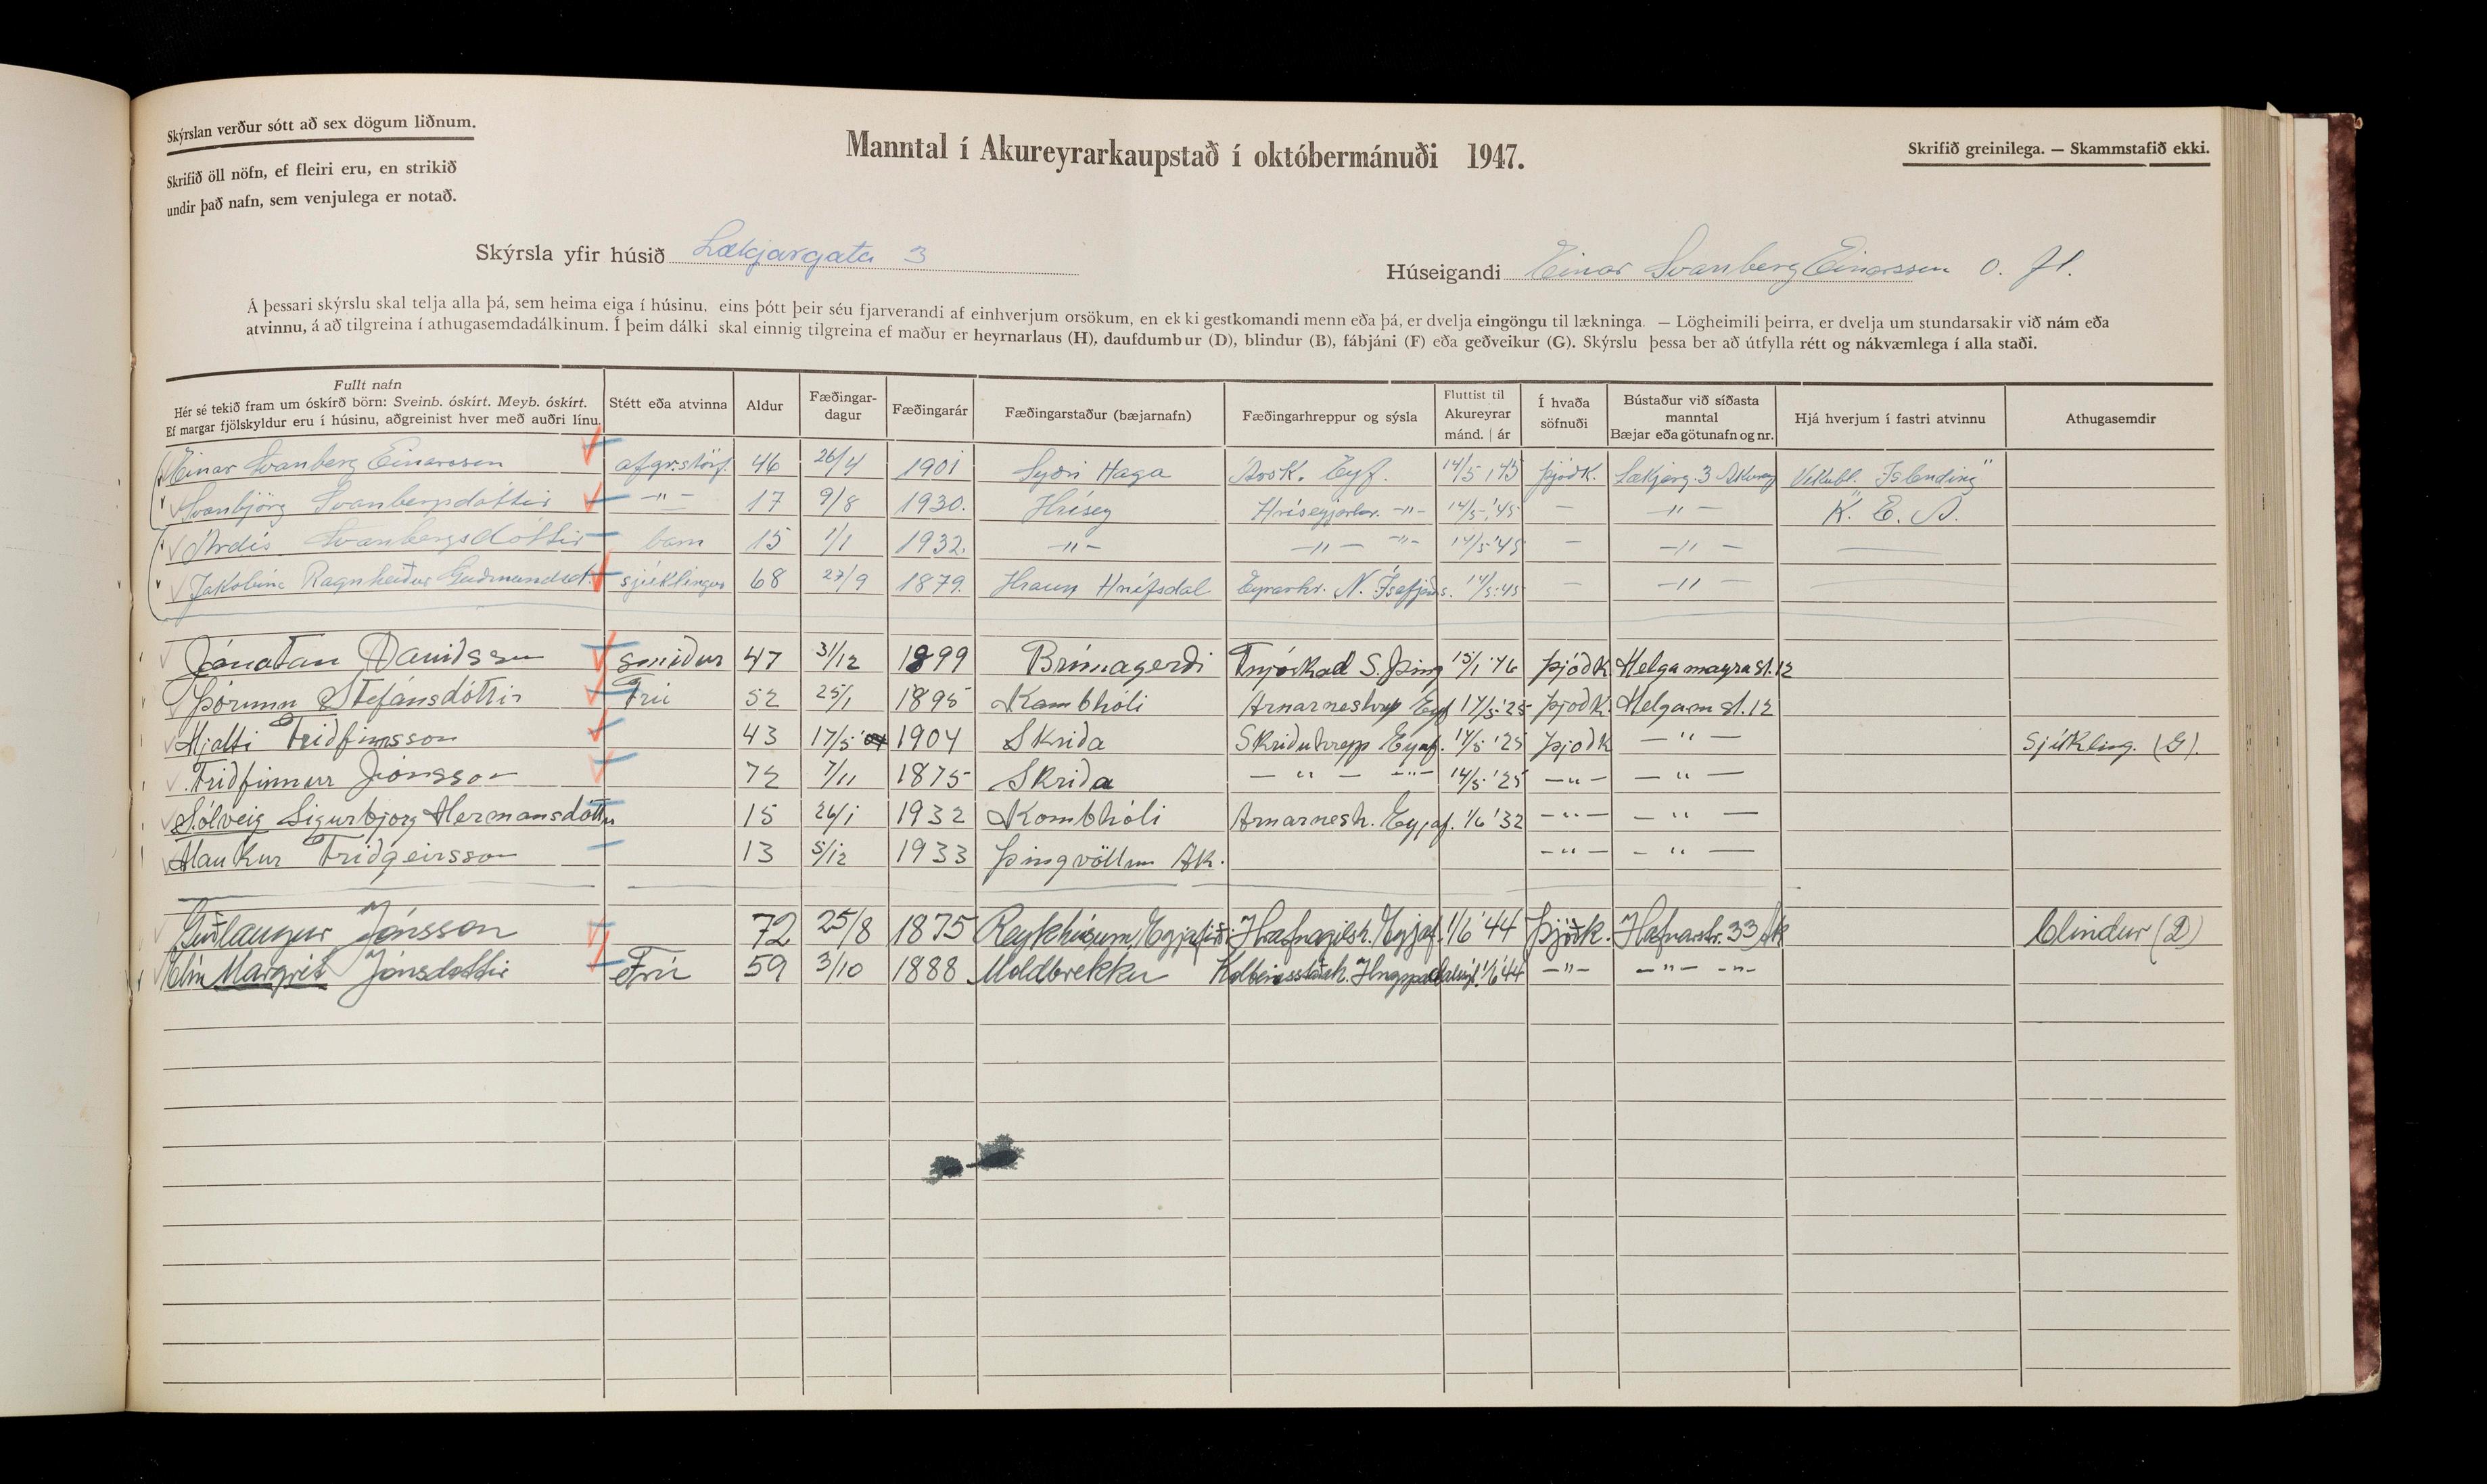 Skýrslan verður sótt að sex dögum liðnum.
Skrifið öll nöfn, ef fleiri eru, en strikið
undir það nafn, sem venjulega er notað.
Manntal í Akureyrarkaupstað í októbermánuði 1947.
Skrifið greinilega. — Skammstafið ekki.
Skýrsla yfir húsið Lækjargata 3
Húseigandi Einar Svanberg Einarsson o. fl.
Á þessari skýrslu skal telja alla þá, sem heima eiga í húsinu, eins þótt þeir séu fjarverandi af einhverjum orsökum, en ekki gestkomandi menn eða þá, er dvelja eingöngu til lækninga. — Lögheimili þeirra, er dvelja um stundarsakir við nám eða
atvinnu, á að tilgreina í athugasemdadálkinum. Í þeim dálki skal einnig tilgreina ef maður er heyrnarlaus (H), daufdumbur (D), blindur (B), fábjáni (F) eða geðveikur (G). Skýrslu þessa ber að útfylla rétt og nákvæmlega í alla staði.
Fullt nafn
Hér sé tekið fram um óskírð börn: Sveinb. óskírt. Meyb. óskírt.
Ef margar fjölskyldur eru í húsinu, aðgreinist hver með auðri línu.
Stétt eða atvinna
Aldur
Fæðingar-
dagur
Fæðingarár
Fæðingarstaður (bæjarnafn)
Fæðingarhreppur og sýsla
Fluttist til
Akureyrar
mánd. | ár
Í hvaða
söfnuði
Bústaður við síðasta
manntal
Bæjar eða götunafn og nr.
Hjá hverjum í fastri atvinnu
Athugasemdir
Einar Svanberg Einarsson afgr.störf 46 26/4 1901 Syðri Haga Ársk. Eyf. 14/5 '45 þjóðk. Lækjarg. 3 Akurey Vikubl. "Íslending"
Svanbjörg Svanbergsdóttir -"- 17 9/8 1930. Hrísey Hríseyjarhr. -"- 14/5 '45 — -"- K. E. A.
Árdís Svanbergsdóttir barn 15 1/1 1932. -"- -"- -"- 14/5 '45 — -"- —
Jakobína Ragnheiður Guðmundsd. sjúklingur 68 27/9 1879. Hraun Hnífsdal Eyrarhr. N. Ísafjarðs. 14/5 '45 — -"-
Jónatan Davíðsson smiður 47 31/12 1899 Brúnagerði Fnjóskad S. Þing 15/1 '46 þjóðk Helgamagrast. 12
Þórunn Stefánsdóttir Frú 52 25/1 1895 Kambhóli Arnarneshrep Eyf 14/5 '25 þjóðk. Helgam st. 12
Hjalti Friðfinnsson 43 17/5 1904 Skriða Skriðuhrepp Eyjaf. 14/5 '25 þjóðk — " — Sjúkling. (G).
Friðfinnur Jónsson 72 7/11 1875 Skriða — " — -"- 14/5 '25 -"- — " —
Sólveig Sigurbjörg Hermansdóttir 15 26/1 1932 Kambhóli Arnarnesh. Eyjaf. 1/6 '32 -"- — " —
Haukur Friðgeirsson 13 5/12 1933 Þingvöllum Ak. -"- — " —
Guðlaugur Jónsson 72 25/8 1875 Reykhúsum, Eyjafirði Hrafnagilsh. Eyjaf. 1/6 '44 Þjóðk. Hafnarstr. 33 Ak blindur (D)
Elín Margrét Jónsdóttir Frú 59 3/10 1888 Moldbrekku Kolbeinsstaðah. Hnappadalssýsl. 1/6 '44 -"- -"- -"-